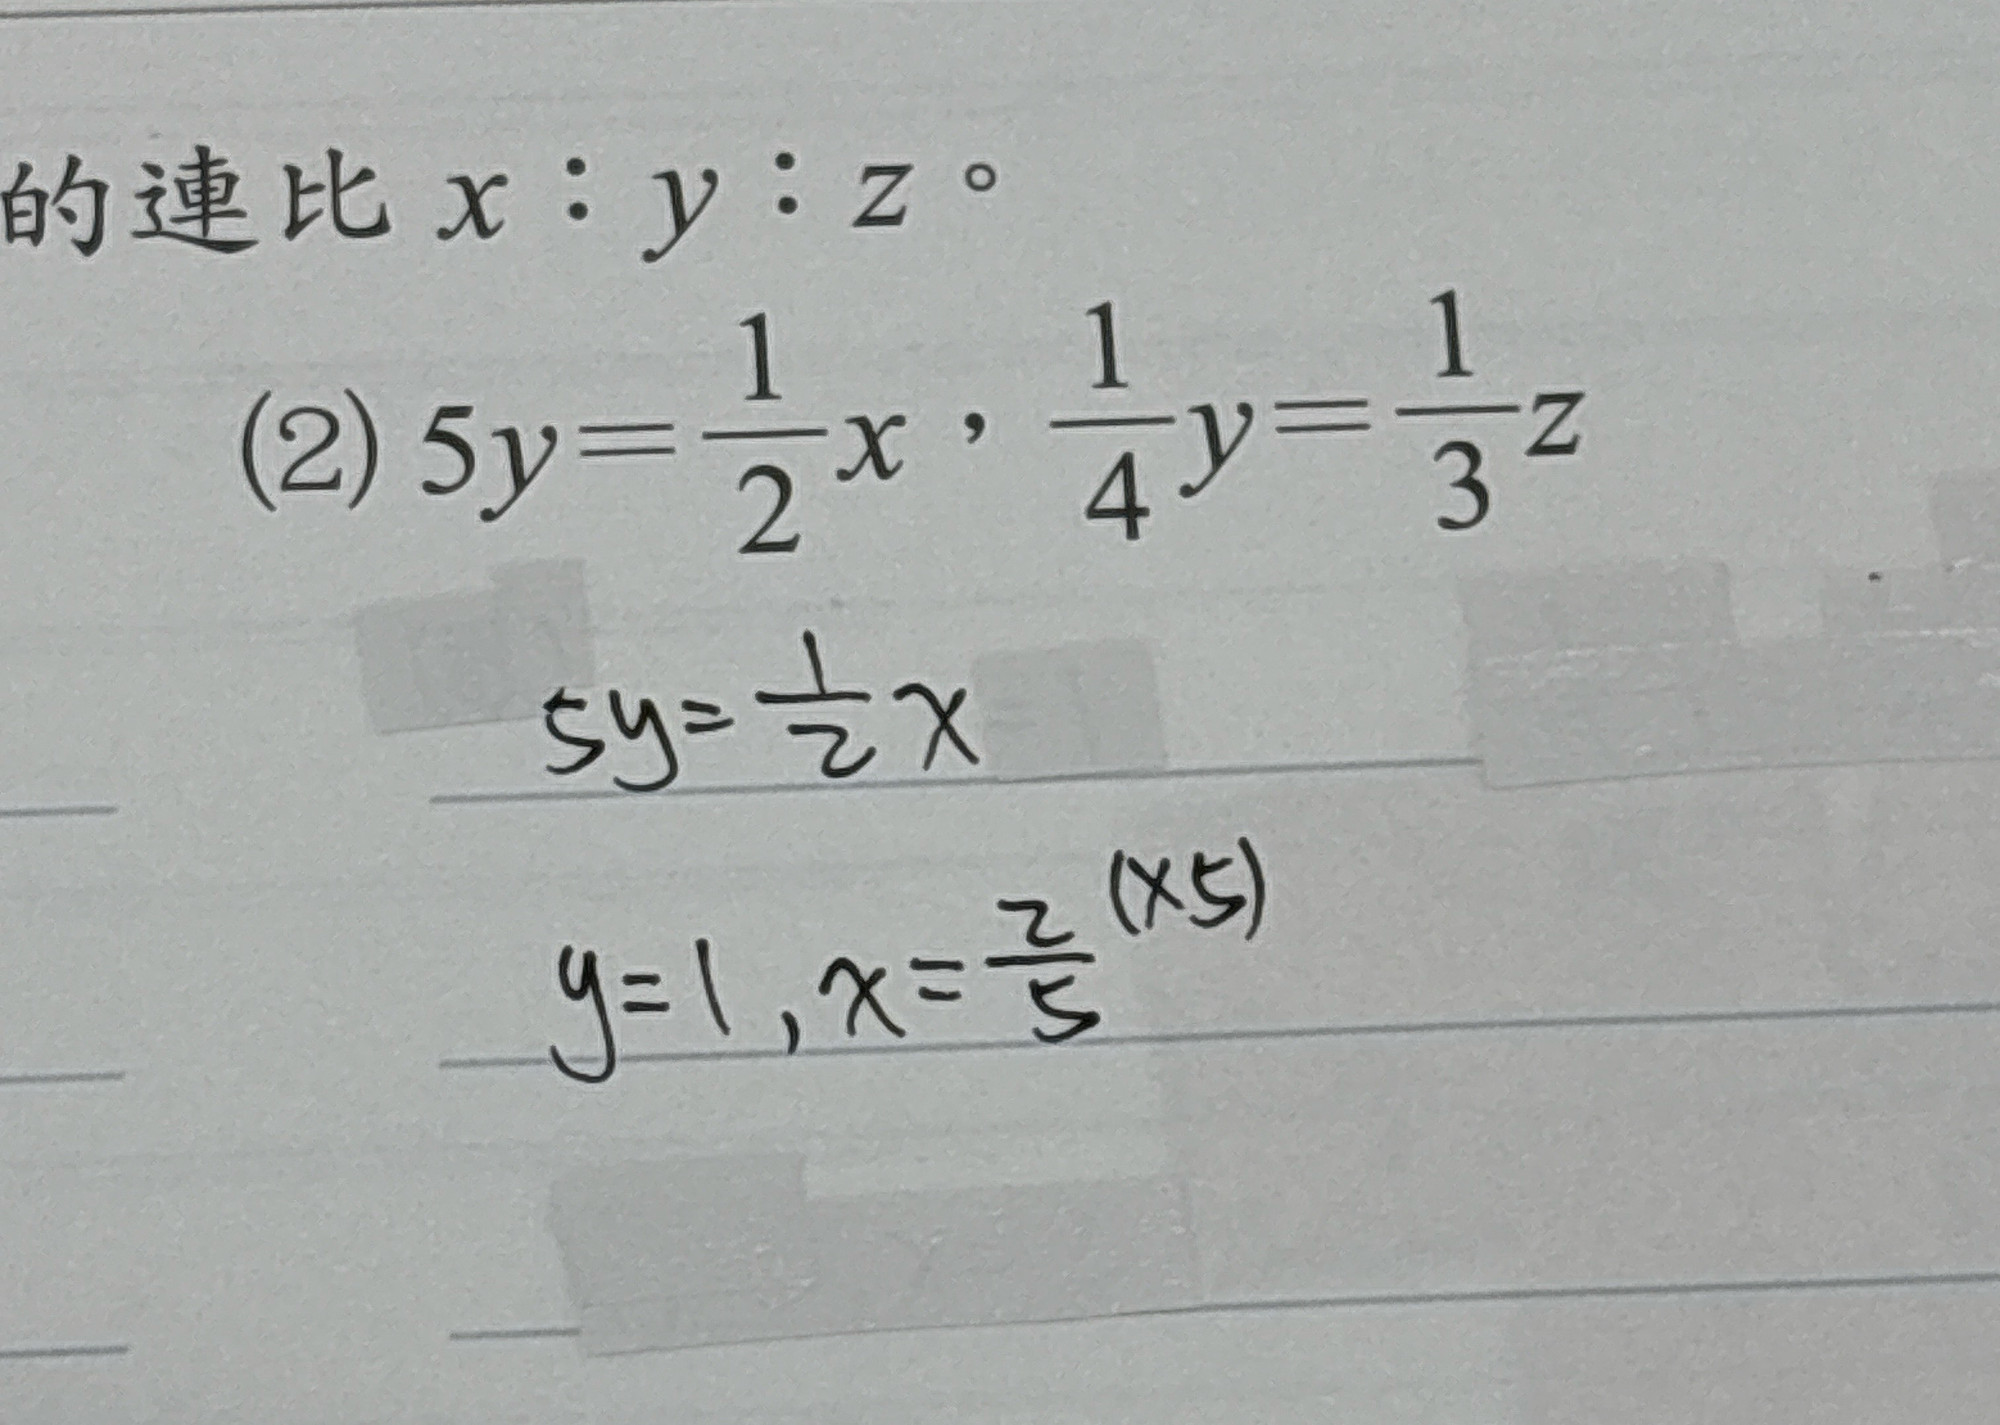 的連比 x：y：z。
(2) 5y=1/2x，1/4y=1/3z
5y=1/2x
y=1,x=2/5(×5)